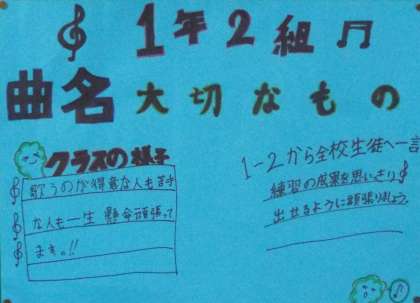 1年2組
曲名 大切なもの
クラスの様子
歌うのが得意な人も苦手
な人も一生懸命頑張って
ます。!!
1-2から全校生徒へ一言
練習の成果を思いっきり
出せるように頑張りましょう。